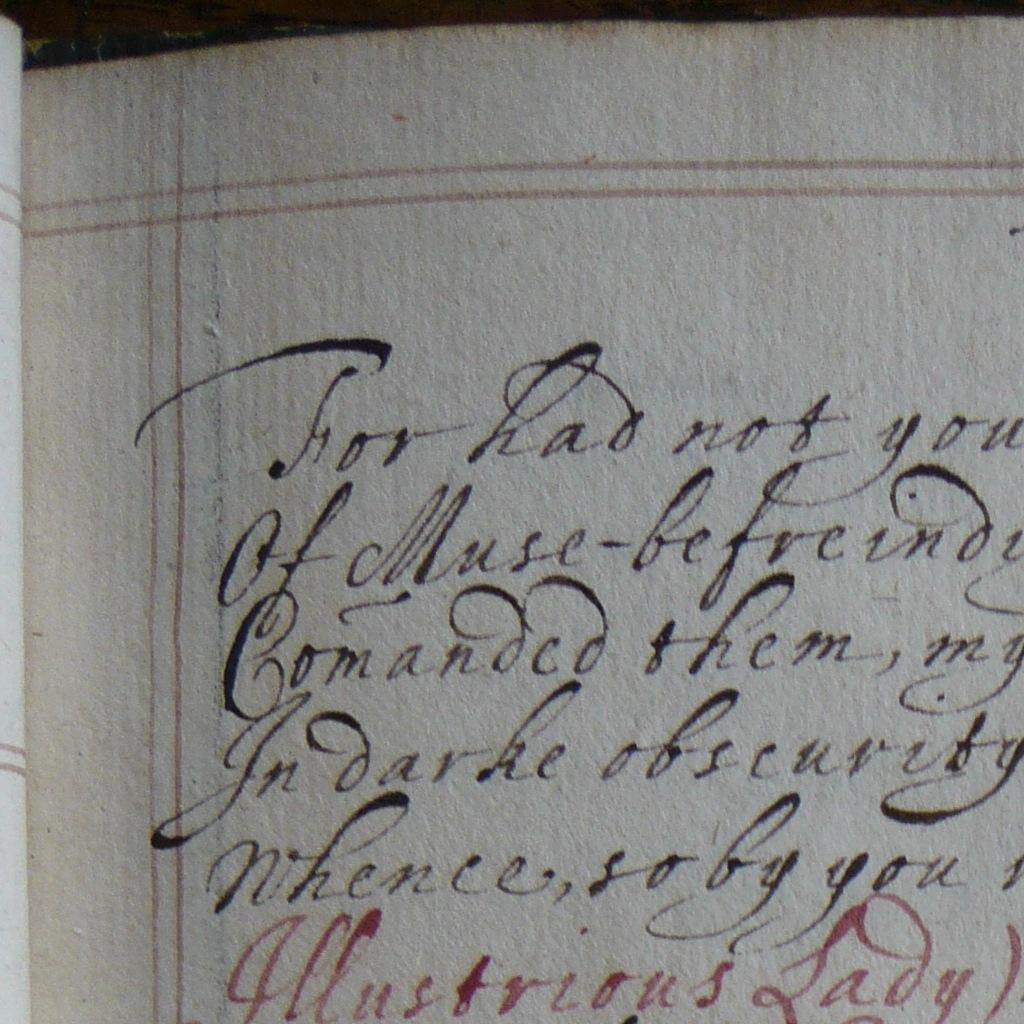 For had not you
Of Muse-befreindi
Com̄anded them, my
In darke obscurity
Whence, so by you
Illustrious Lady)